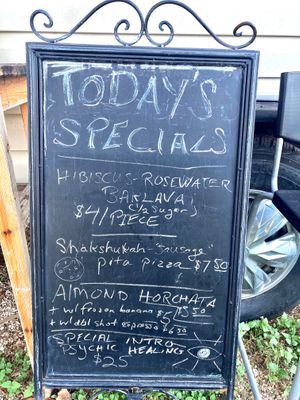 TODAY'S
SPECIALS
HIBISCUS-ROSEWATER
BAKLAVA
(1/2 sugar)
$4/PIECE
Shakshukah-"sausage"
pita pizza $7.50
ALMOND HORCHATA
+ w/ frozen banana $5.50
+ w/ dbl shot espresso $6.50
SPECIAL INTRO
PSYCHIC HEALING
$25